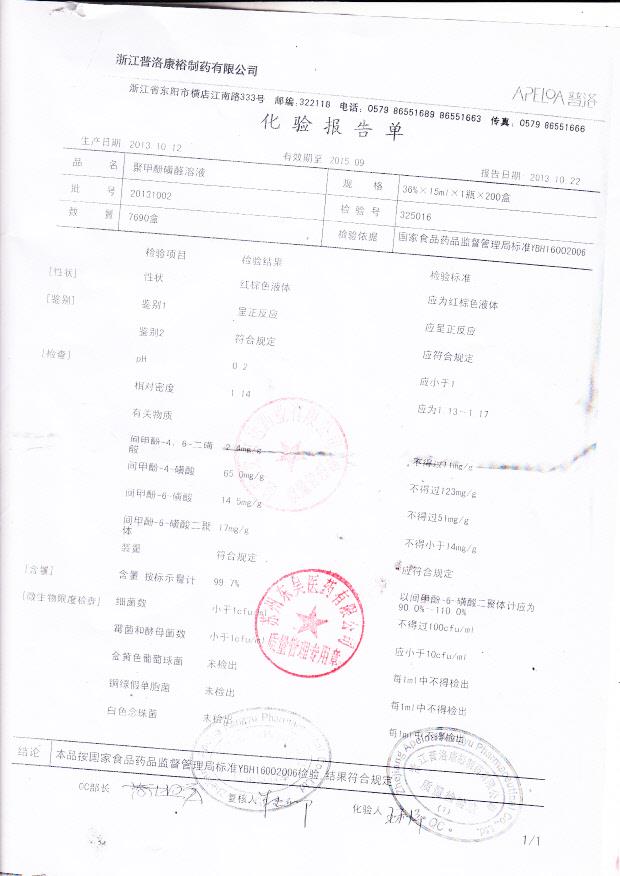 浙江普洛康裕制药有限公司
APELOA 普洛
浙江省东阳市横店江南路333号 邮编:322118 电话:0579 86551689 86551663 传真:0579 86551666
化验报告单
生产日期 2013.10.12 有效期至 2015.09 报告日期 2013.10.22
品名 聚甲酚磺醛溶液 规格 36%×15ml×1瓶×200盒
批号 20131002 检验号 325016
数量 7690盒 检验依据 国家食品药品监督管理局标准YBH16002006
检验项目 检验结果 检验标准
[性状] 性状 红棕色液体 应为红棕色液体
[鉴别] 鉴别1 呈正反应 应呈正反应
鉴别2 符合规定 应符合规定
[检查] pH 0.2 应小于1
相对密度 1.14 应为1.13-1.17
有关物质
间甲酚-4，6-二磺酸 mg/g 不得过11mg/g
间甲酚-4-磺酸 65.0mg/g 不得过123mg/g
间甲酚-6-磺酸 14.5mg/g 不得过51mg/g
间甲酚-6-磺酸二聚体 17mg/g 不得小于14mg/g
装量 符合规定 应符合规定
[含量] 含量 按标示量计 99.7% 以间甲酚-6-磺酸二聚体计应为90.0%-110.0%
[微生物限度检查] 细菌数 小于1cfu/ml 不得过100cfu/ml
霉菌和酵母菌数 小于1cfu/ml 应小于10cfu/ml
金黄色葡萄球菌 未检出 每1ml中不得检出
铜绿假单胞菌 未检出 每1ml中不得检出
白色念珠菌 未检出 每1ml中不得检出
苏州东吴医药有限公司
质量管理专用章
结论 本品按国家食品药品监督管理局标准YBH16002006检验,结果符合规定
QC部长 复核人 化验人
浙江普洛康裕制药有限公司
质量检验
(1)
QC
1/1